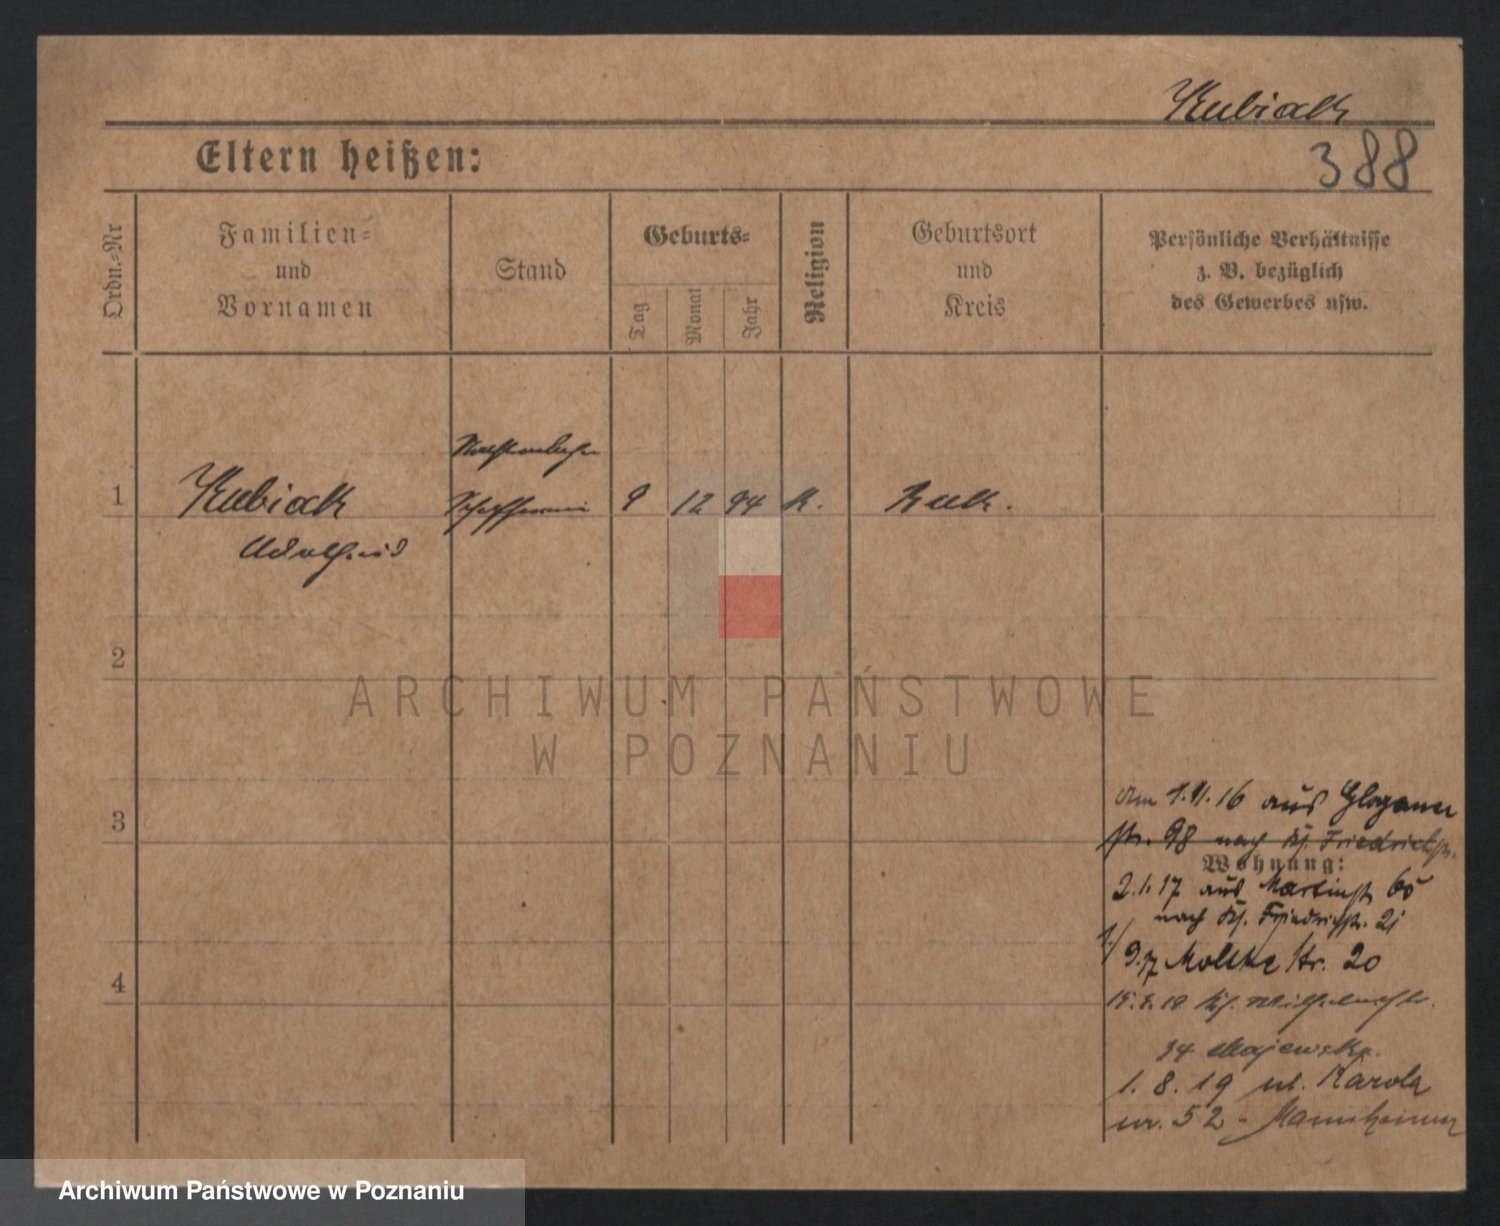 Kubiak
388
Eltern heißen:
Ordn.-Nr
Familien-
und
Vornamen
Stand
Geburts-
Tag
Monat
Jahr
Religion
Geburtsort
und
Kreis
Persönliche Verhältnisse
z. B. bezüglich
des Gewerbes usw.
1
Kubiak
9 12 94 K.
Buk.
2
ARCHIWUM PAŃSTWOWE
W POZNANIU
3
am 1.11.16 aus Glogauer
str. 98 nach Kj. Friedrichstr.
Wohnung:
2.1.17 aus Martinstr. 65
nach Kj. Friedrichstr. 21
1./9.17 Moltke Str. 20
4
34 Majewska.
1. 8. 19 ul. Karola
nr. 52 - Mannheimer
Archiwum Państwowe w Poznaniu